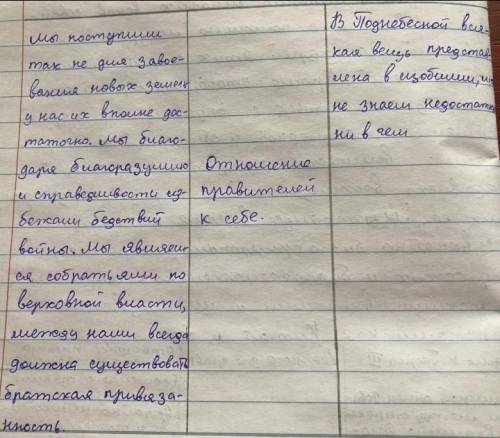 Мы поступили
так не для завое-
вания новых земель,
у нас их вполне дос-
таточно. Мы благо-
даря благоразумию
и справедливости из-
бежали бедствий
войны. Мы являем-
ся собратьями по
верховной власти,
между нами всегда
должна существовать
братская привяза-
нность.
Отношение
правителей
к себе.
В Поднебесной вся-
кая вещь представ
лена в изобилии, мы
не знаем недостатк
ни в чем